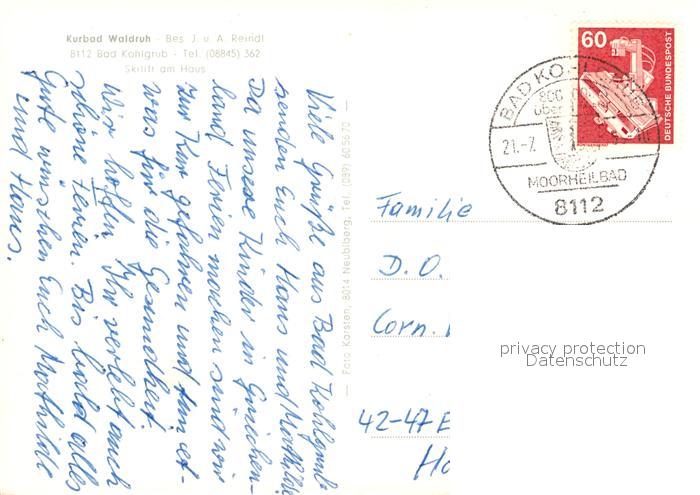 Kurbad Waldruh - Bes. J. u. A. Reindl
8112 Bad Kohlgrub - Tel. (08845) 362
Skilift am Haus
Viele Grüße aus Bad Kohlgrub
senden Euch Hans und Mathilde.
Da unsere Kinder in Griechen-
land Ferien machen sind wir
zur Kur gefahren und tun et-
was für die Gesundheit.
Wir hoffen Ihr verlebt auch
schöne Ferien. Bis bald alles
Gute wünschen Euch Mathilde
und Hans.
Foto Karsten, 8014 Neubiberg, Tel. (089) 60 56 70
60
DEUTSCHE BUNDESPOST
BAD KO
800
über
21.-7.
MOORHEILBAD
8112
Familie
D. O.
Corn.
42-47 E
Ho
privacy protection
Datenschutz